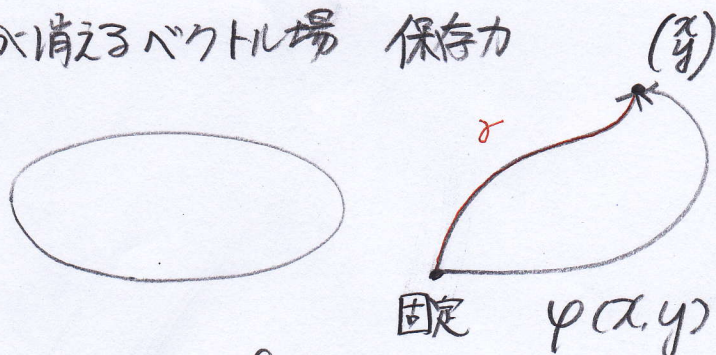 消えるベクトル場 保存力
(x
y)
γ
固定 φ(x, y)